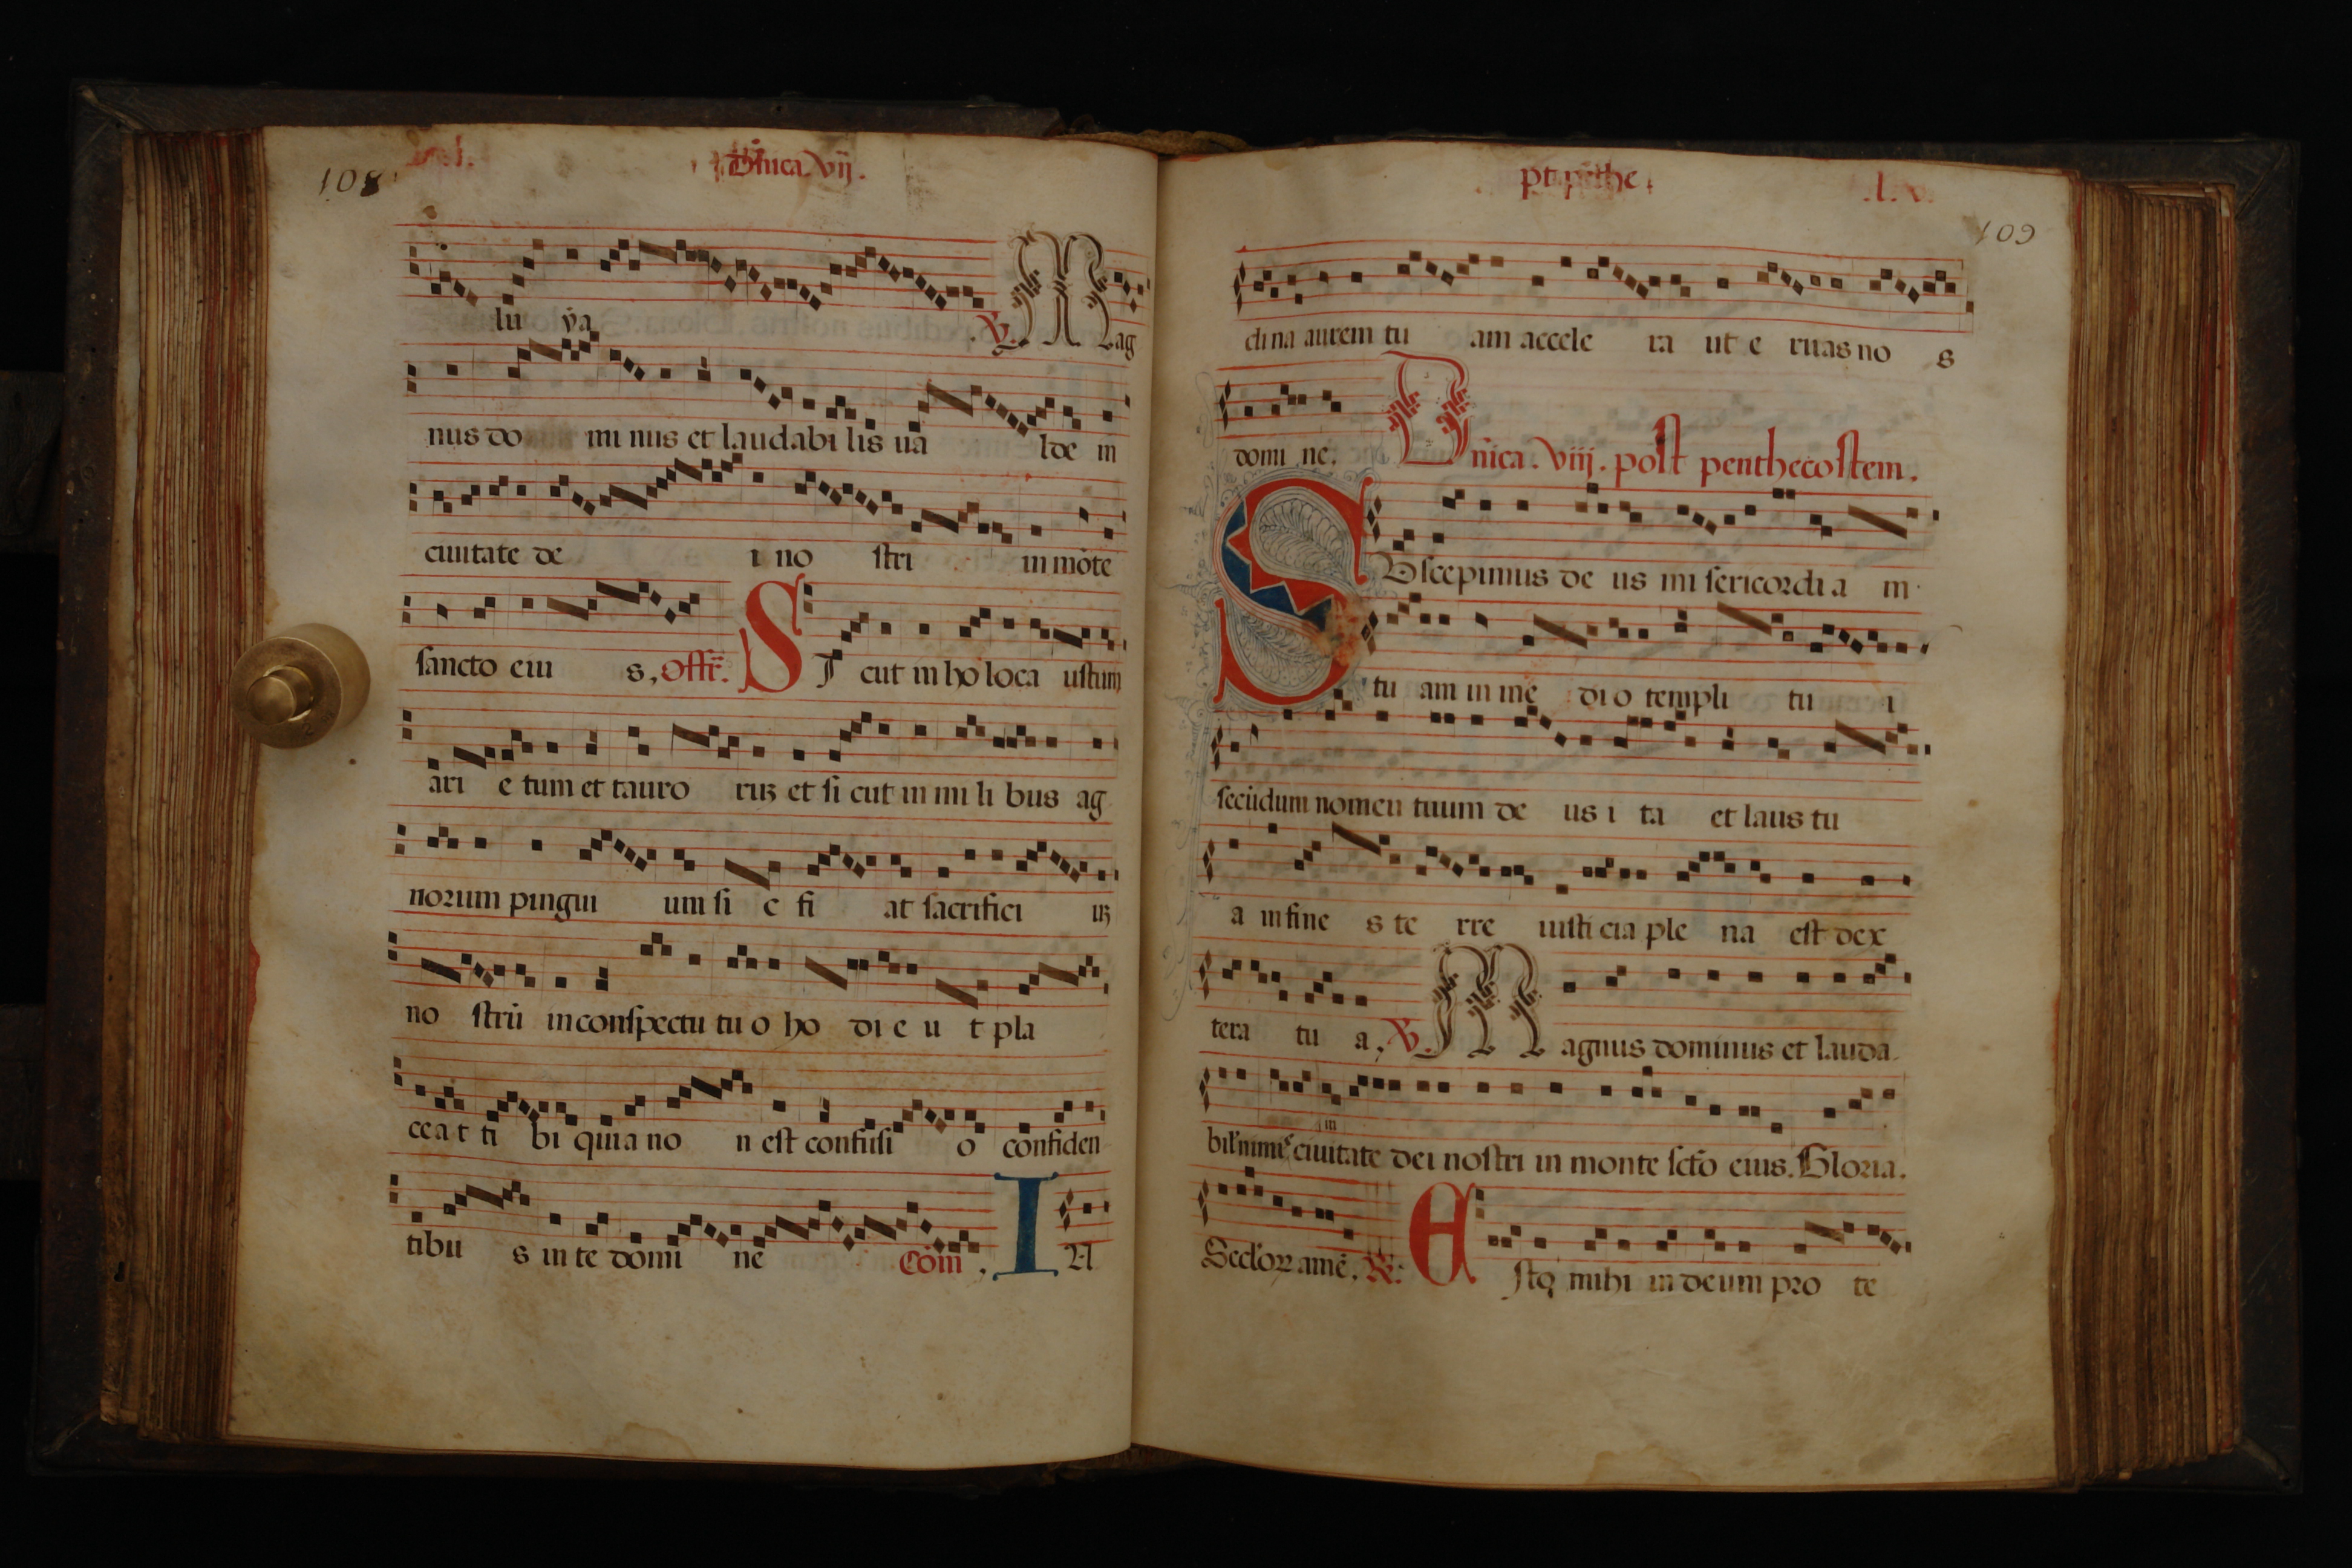 108
Dñica. vij.
lu ya ℣. Mag
nus do mi nus et laudabi lis ua lde in
ciuitate de i no stri in mōte
sancto eiu s, Offr̄. SI cut in ho loca ustum
ari e tum et tauro ruʒ et si cut in mi li bus ag
norum pingui um si c fi at sacrifici uʒ
no strū in conspectu tu o ho di e u t pla
cea t ti bi quia no n est confusi o confiden
tibu s in te domi ne Cōm. IN
109
pt pēthe.
cli na aurem tu am accele ra ut e ruas no s
domi ne. Dn̄ica. viij. post penthecostem.
SUscepimus de us mi sericordi a m
tu am in me di o templi tu i
secūdum nomen tuum de us i ta et laus tu
a in fine s te rre iusti cia ple na est dex
tera tu a, ℣. Magnus dominus et lauda
in
bil' nimiˢ ciuitate dei nostri in monte sctō eius. Gloria.
Seclorꝝ amē. ℟: Esto mihi in deum pro te